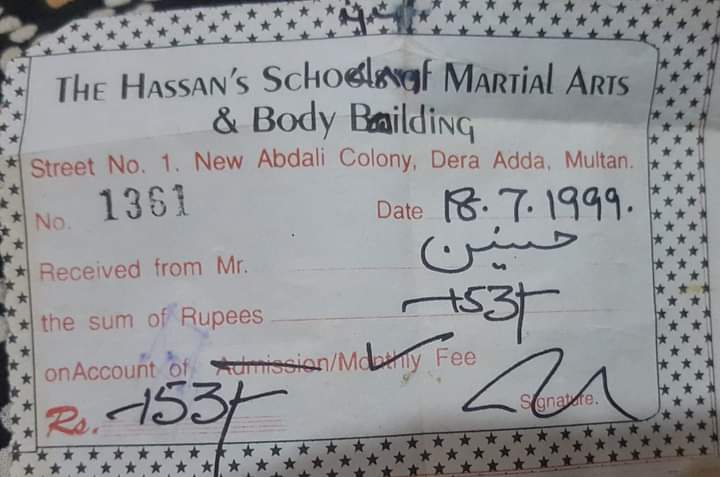 THE HASSAN'S SCHOOL of MARTIAL ARTS
& Body Building
Street No. 1. New Abdali Colony, Dera Adda, Multan.
No. 1361 Date 18.7.1999.
Received from Mr. حسنین
the sum of Rupees 153/-
on Account of Admission/Monthly Fee
Rs. 153/- Signature.